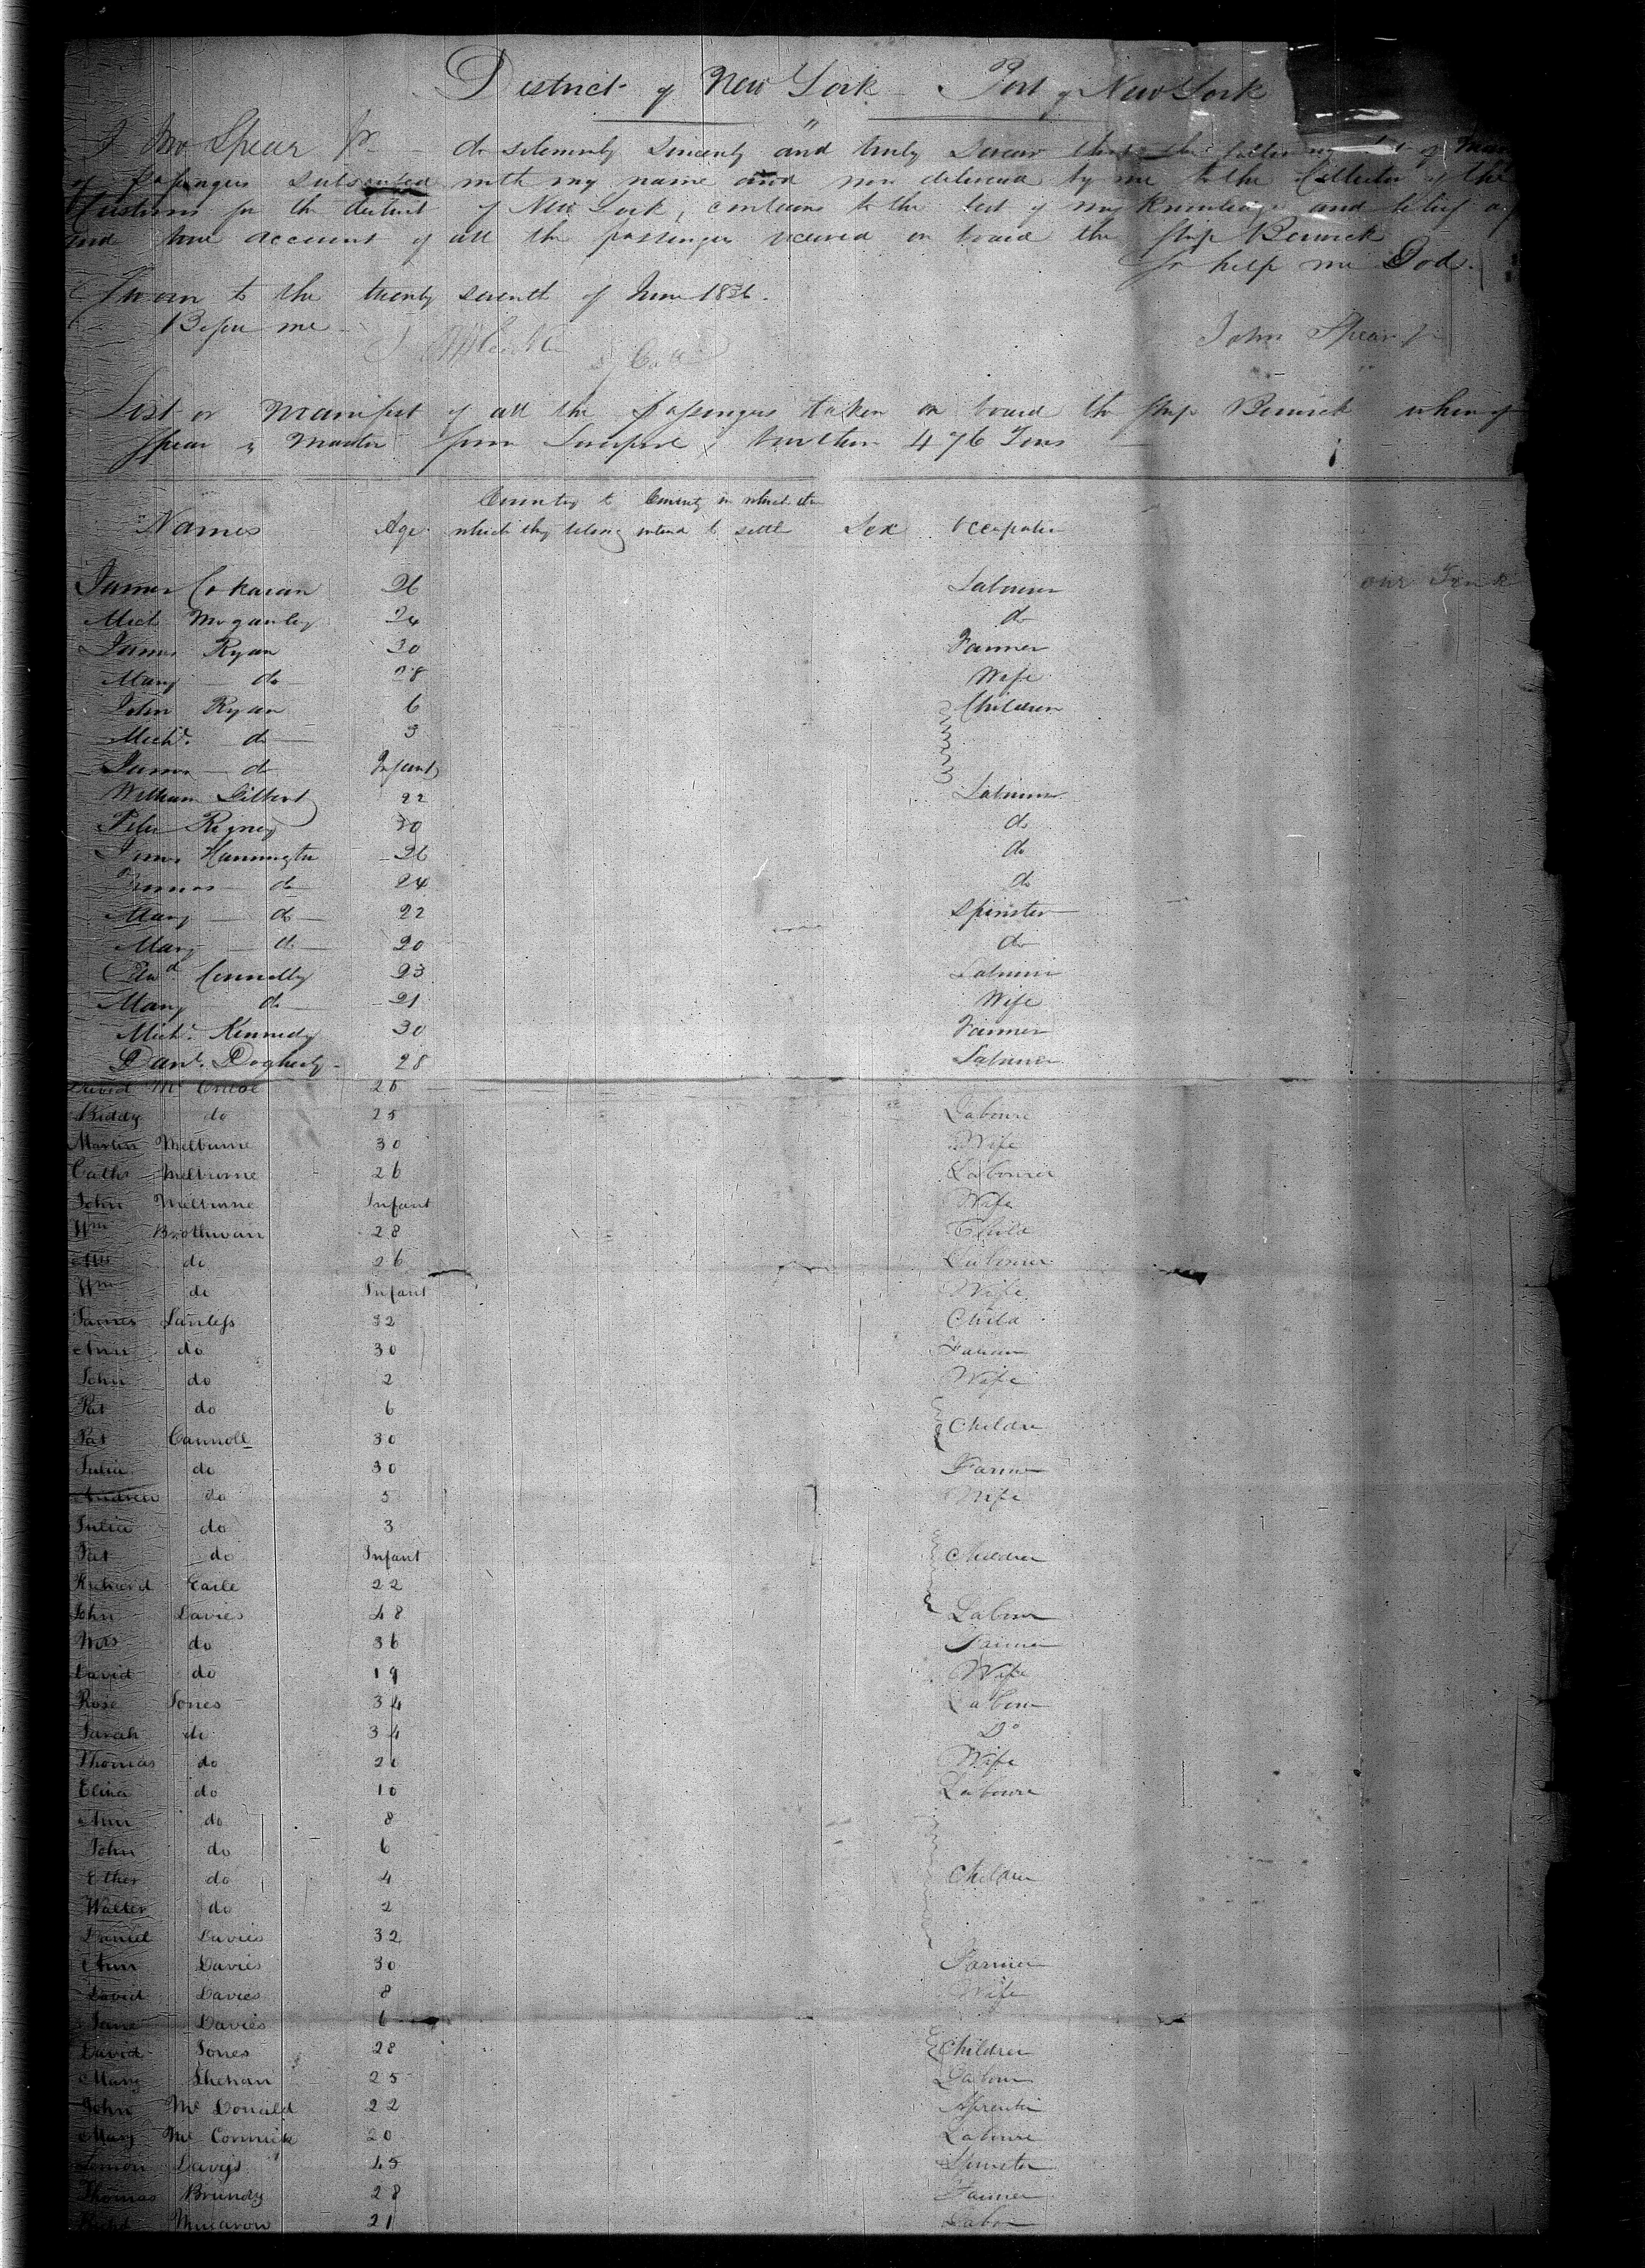 District of New York - Port of New York
I Jno Spear Jr do solemnly Sincerely and truly Swear that the following list of
of Passengers Subscribed with my name and now delivered by me to the Collector of the
Customs for the district of New York, contains to the best of my Knowledge and belief a
and true account of all the passengers received on board the Ship Berwick
So help me God.
Sworn to the twenty seventh of June 1836.
Before me
John Spear Jr
List or Manifest of all the Passengers taken on board the Ship Berwick whereof
Spear is Master from Liverpool burthen 476 Tons
Names Age Country to which they belong Country in which they intend to settle Sex Occupation
James Corkaran 26 Labourer
Mich Mcganley 24 do
James Ryan 30 Farmer
Mary do 28 Wife
John Ryan 6 Children
Michl. do 3
James do Infant
William Gilbert 22 Labourer
Peter Rigney 30 do
James Hannington 26 do
Thomas do 24 do
Mary do 22 Spinster
Mary do 20 do
Edwd Connolly 23 Labourer
Mary do 21 Wife
Michl. Kennedy 30 Farmer
Danl. Dogherty 28 Labourer
David Mc 26
Biddy do 25 Laboure
Martin Melburne 30 Wife
Cathe Melburne 26 Labourer
John Melburne Infant Wife
Wm Brothwan 28 Child
do 26 Labourer
Wm do Infant Wife
James Lanless 32 Child
Ann do 30 Farmer
John do 2 Wife
Pat do 6
Pat Cannoll 30 Childre
Julia do 30 Farmer
Andrew do 5 Wife
Julia do 3
Pat do Infant Children
Richard Earle 22
John Davies 48 Labour
Mrs do 36 Farmer
David do 19 Wife
Rose Jones 34 Labour
Sarah do 34 Do
Thomas do 20 Wife
Eliza do 10 Laboure
Ann do 8
John do 6
Ether do 4 Children
Walter do 2
Daniel Davies 32
Ann Davies 30 Farmer
David Davies 8 Wife
Jane Davies 6
David Jones 28 Children
Mary Shehan 25 Labour
John Mc Donald 22
Mary Mc Cormick 20 Laboure
Simon Davis 45
Thomas Brundy 28 Farmer
21 Labor